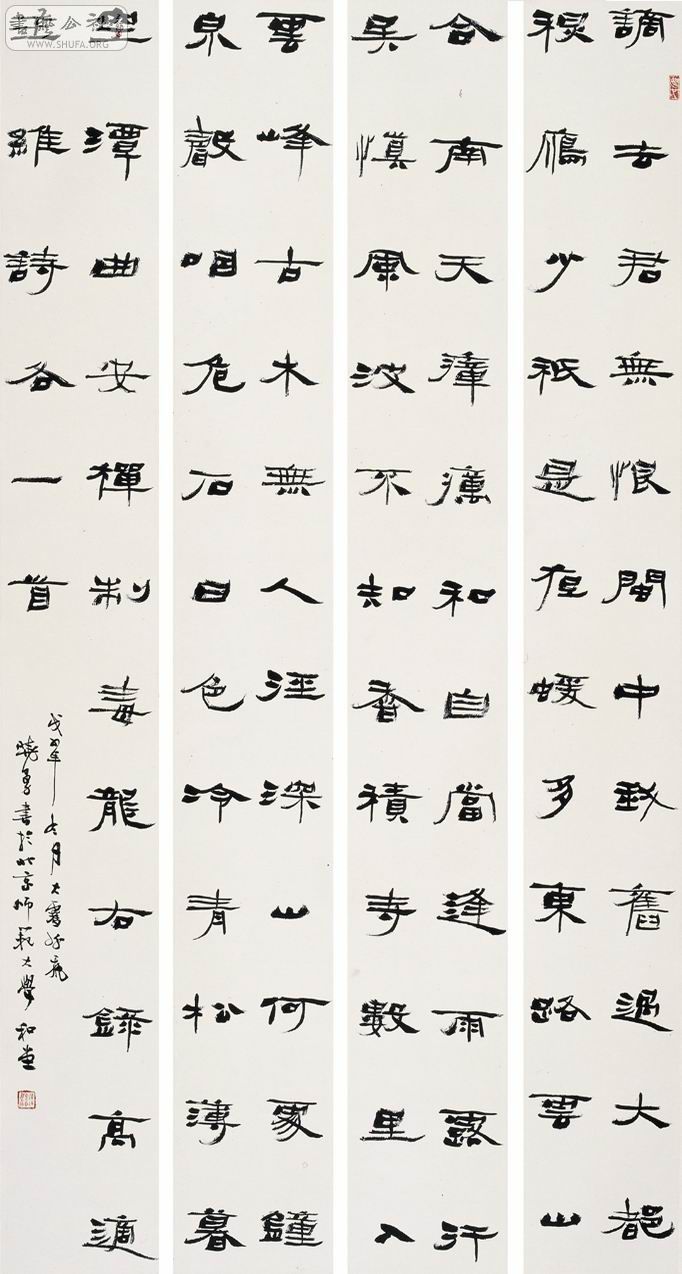 謫去君無恨閩中我舊過大都
秋鴈少祇是夜蝯多東路雲山
合南天瘴癘和自當逢雨露行
矣慎風波不知香積寺數里入
雲峰古木無人徑深山何處鐘
泉聲咽危石日色冷青松薄暮
空潭曲安禪制毒龍右錄高適
王維詩各一首
年冬月大
曉勇書於北京師範大學和堂
WWW.SHUFA.ORG